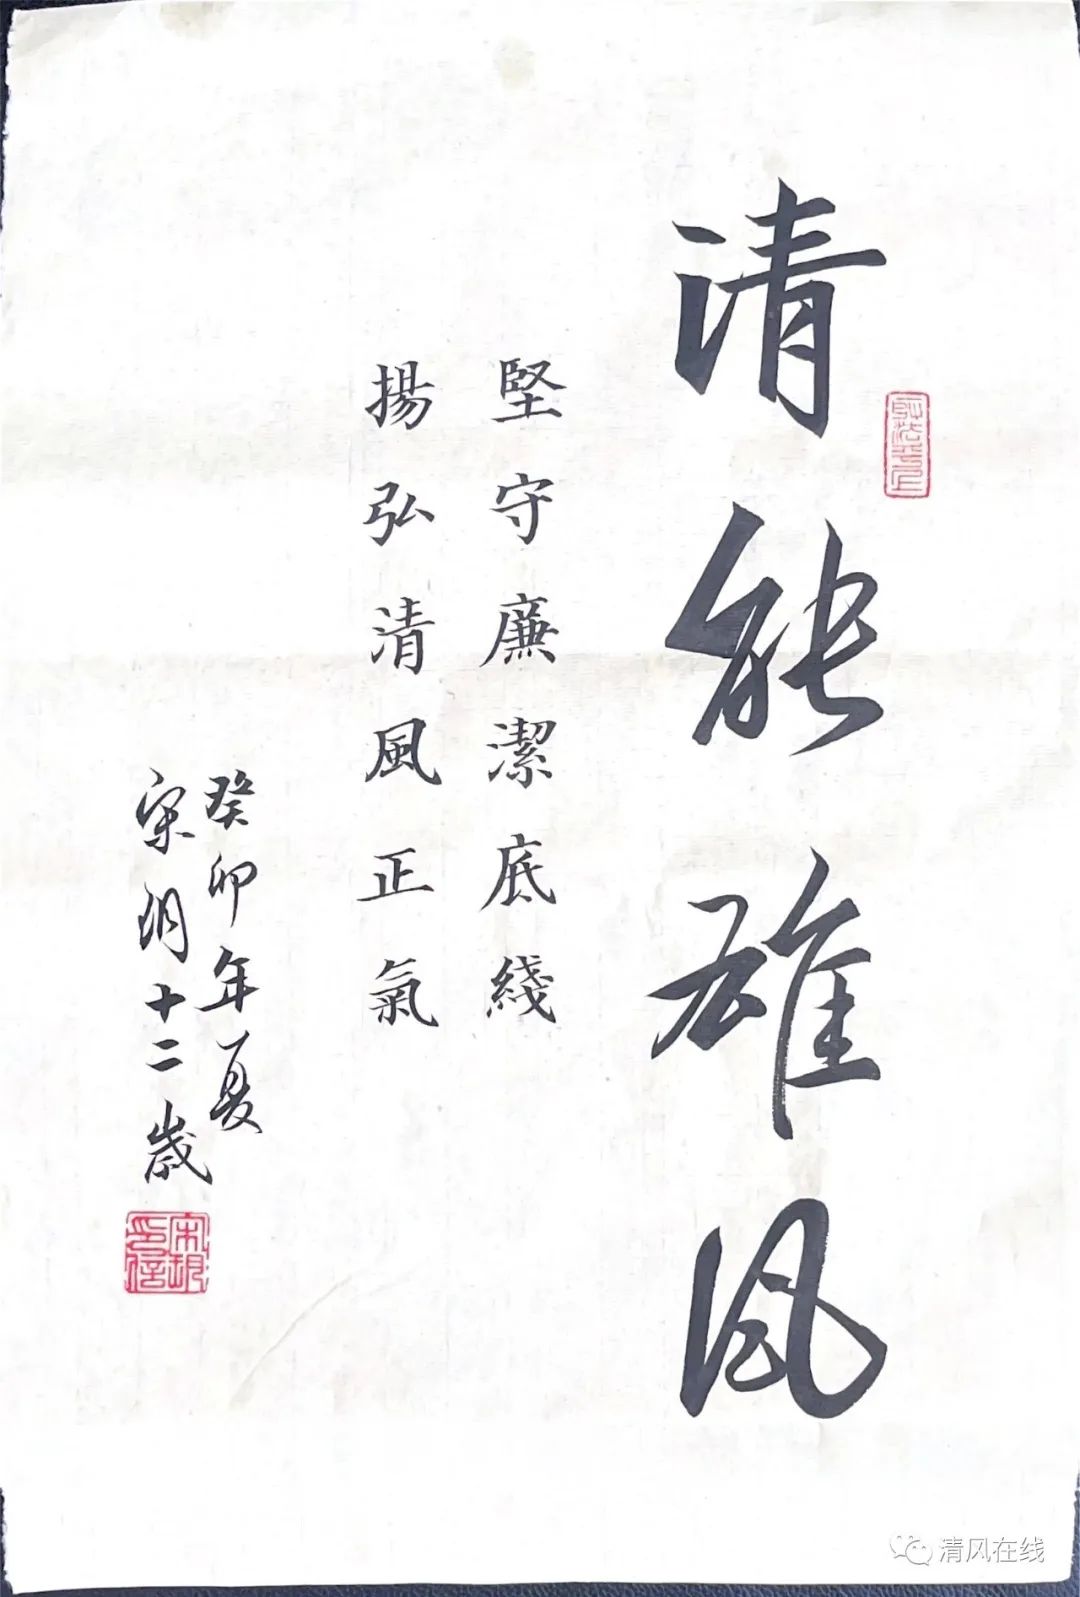 清能雄風
堅守廉潔底綫
揚弘清風正氣
癸卯年夏
宋玥十二歲
宋玥印信
清风在线